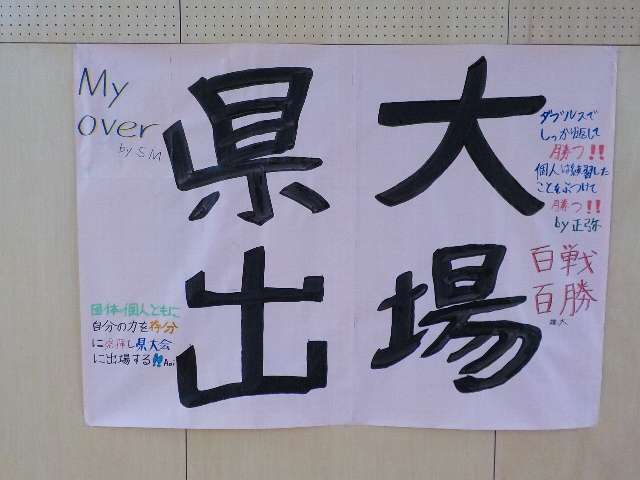 県大
出場
My
over
by S.M
ダブルスで
しっかり返して
勝つ!!
個人は練習した
ことをぶつけて
勝つ!!
by 正弥
百戦
百勝
雄大
団体・個人ともに
自分の力を存分
に発揮し県大会
に出場する!! Aoi